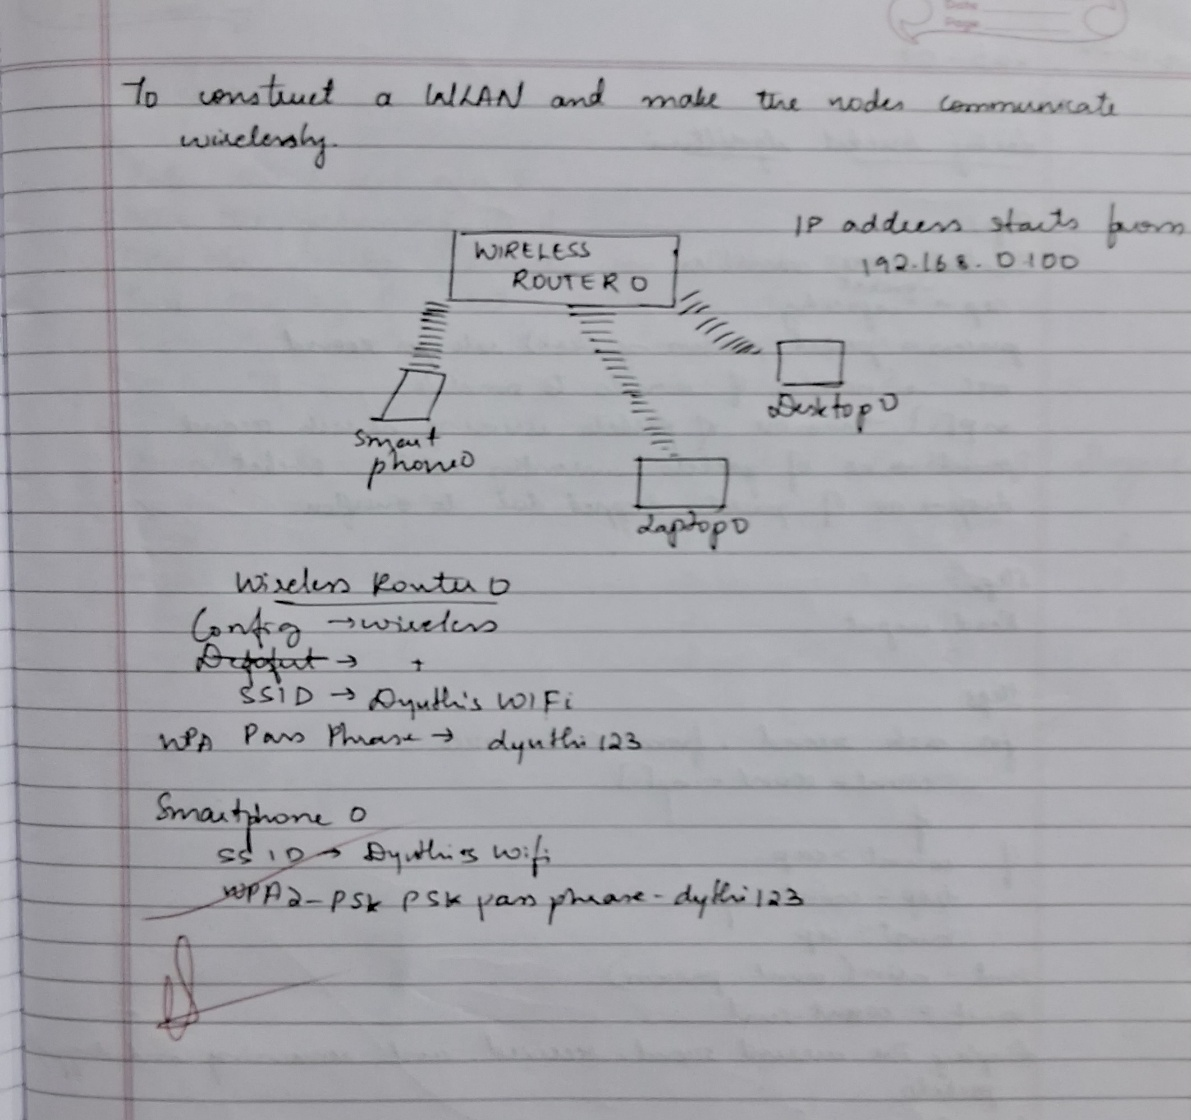 Date
Page
To construct a WLAN and make the nodes communicate
wirelessly.
IP address starts from
192.168.0.100
WIRELESS
ROUTER 0
Desktop 0
Smart
phone0
Laptop 0
Wireless Router 0
Config → wireless
→ +
SSID → Dyuthi's WIFi
WPA Pass Phrase → dyuthi123
Smartphone 0
SSID → Dyuthi's Wifi
WPA2-PSK PSK pass phrase - dythi123